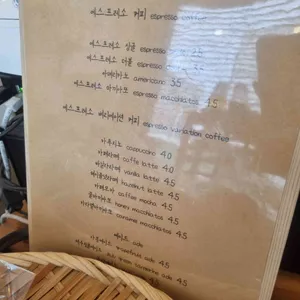 에스프레소 커피 espresso coffee
에스프레소 싱글 espresso 2.5
에스프레소 더블 espresso
아메리카노 americano 3.5
에스프레소 마끼아또 espresso macchiatos 4.5
에스프레소 베리에이션 커피 espresso variation coffee
카푸치노 cappuccino 4.0
카페라떼 caffe latte 4.0
바닐라라떼 vanilla latte 4.5
헤이즐넛라떼 hazelnut latte 4.5
카페모카 caffee mocha 4.5
허니마끼아또 honey macchiatos 4.5
카라멜마끼아또 caramel macchiatos 4.5
에이드 ade
grapefruit ade 4.5
green tangerine ade 4.5